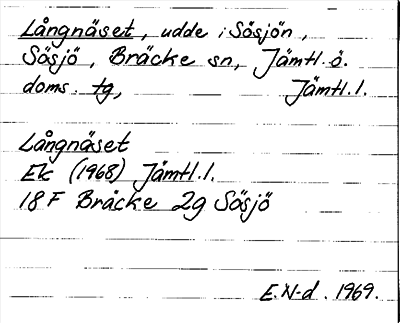 Långnäset, udde i Sösjön,
Sösjö, Bräcke sn, Jämtl. ö.
doms. tg, Jämtl. l.
Långnäset
Ek (1968) Jämtl. l.
18 F Bräcke 2g Sösjö
E. N-d. 1969.